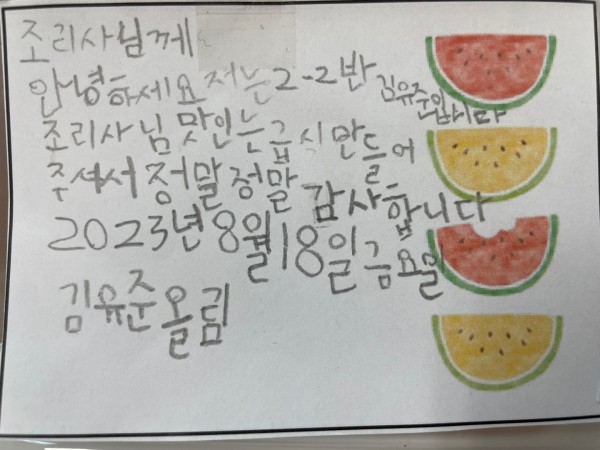 조리사님께
안녕하세요 저는 2-2반 김유준입니다
조리사님 맛인는 급식 만들어
주셔서 정말 정말 감사합니다
2023년 8월 18일 금요일
김유준 올림